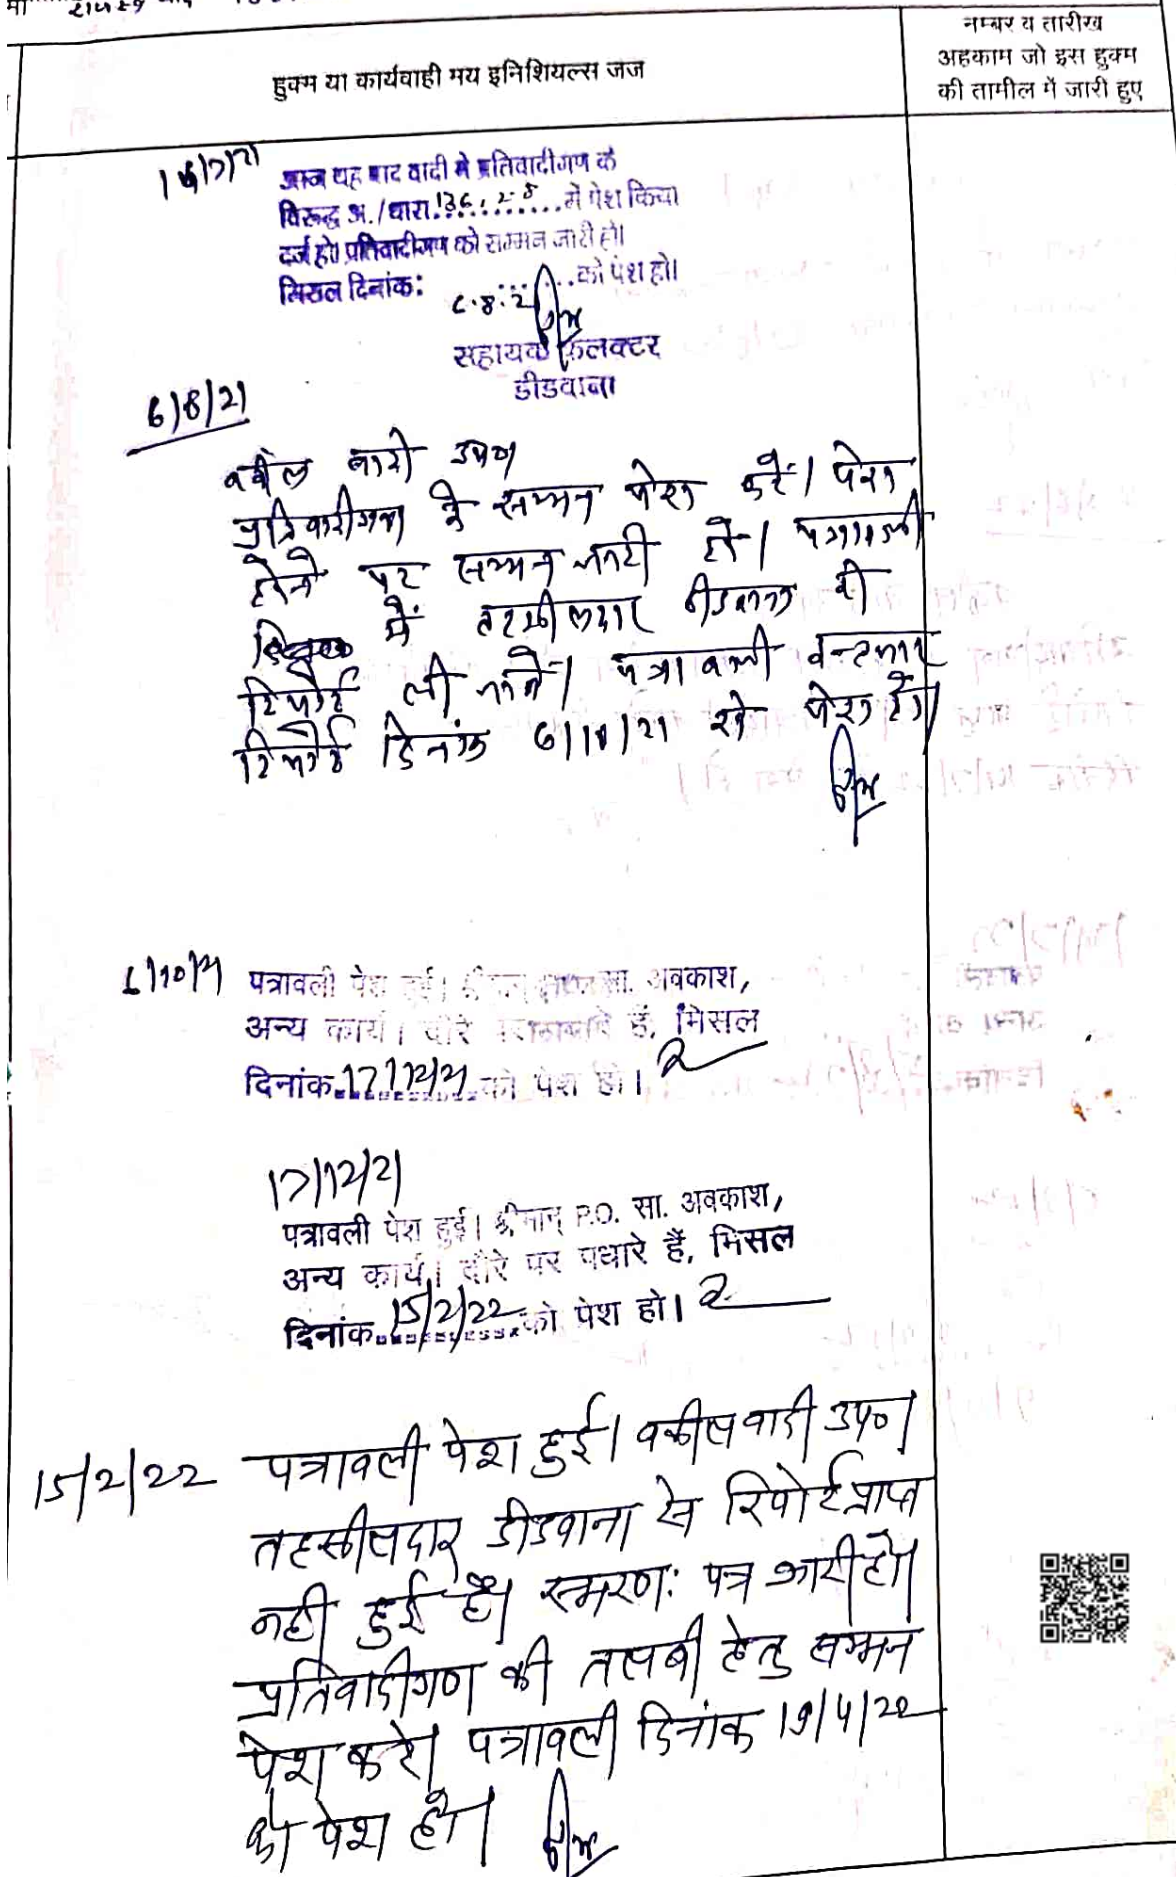 नम्बर व तारीख
अहकाम जो इस हुक्म
की तामील में जारी हुए
हुक्म या कार्यवाही मय इनिशियल्स जज
आज यह वाद वादी ने प्रतिवादीगण के
विरूद्ध अ./धारा. में पेश किया
दर्ज हो। प्रतिवादीगण को सम्मन जारी हो।
मिसल दिनांक: को पेश हो।
सहायक कलक्टर
डीडवाना
6/8/21
वकील वादी उप०।
प्रतिवादीगण के सम्मन पेश करें। पेश
होने पर सम्मन जारी हो। पत्रावली
में तहसीलदार डीडवाना की
रिपोर्ट ली जावे। पत्रावली वास्ते
रिपोर्ट दिनांक को पेश हो।
पत्रावली पेश हुई। श्रीमान् सा. अवकाश,
अन्य कार्य। दौरे पर पधारे हैं, मिसल
दिनांक 17/12/21 को पेश हो।
17/12/21
पत्रावली पेश हुई। श्रीमान् P.O. सा. अवकाश,
अन्य कार्य। दौरे पर पधारे हैं, मिसल
दिनांक 15/2/22 को पेश हो।
15/2/22 पत्रावली पेश हुई। वकील वादी उप०।
तहसीलदार डीडवाना से रिपोर्ट प्राप्त
नही हुई है। स्मरण: पत्र जारी हो।
प्रतिवादीगण की तलबी हेतु सम्मन
पेश करे। पत्रावली दिनांक 19/4/22
को पेश हो।